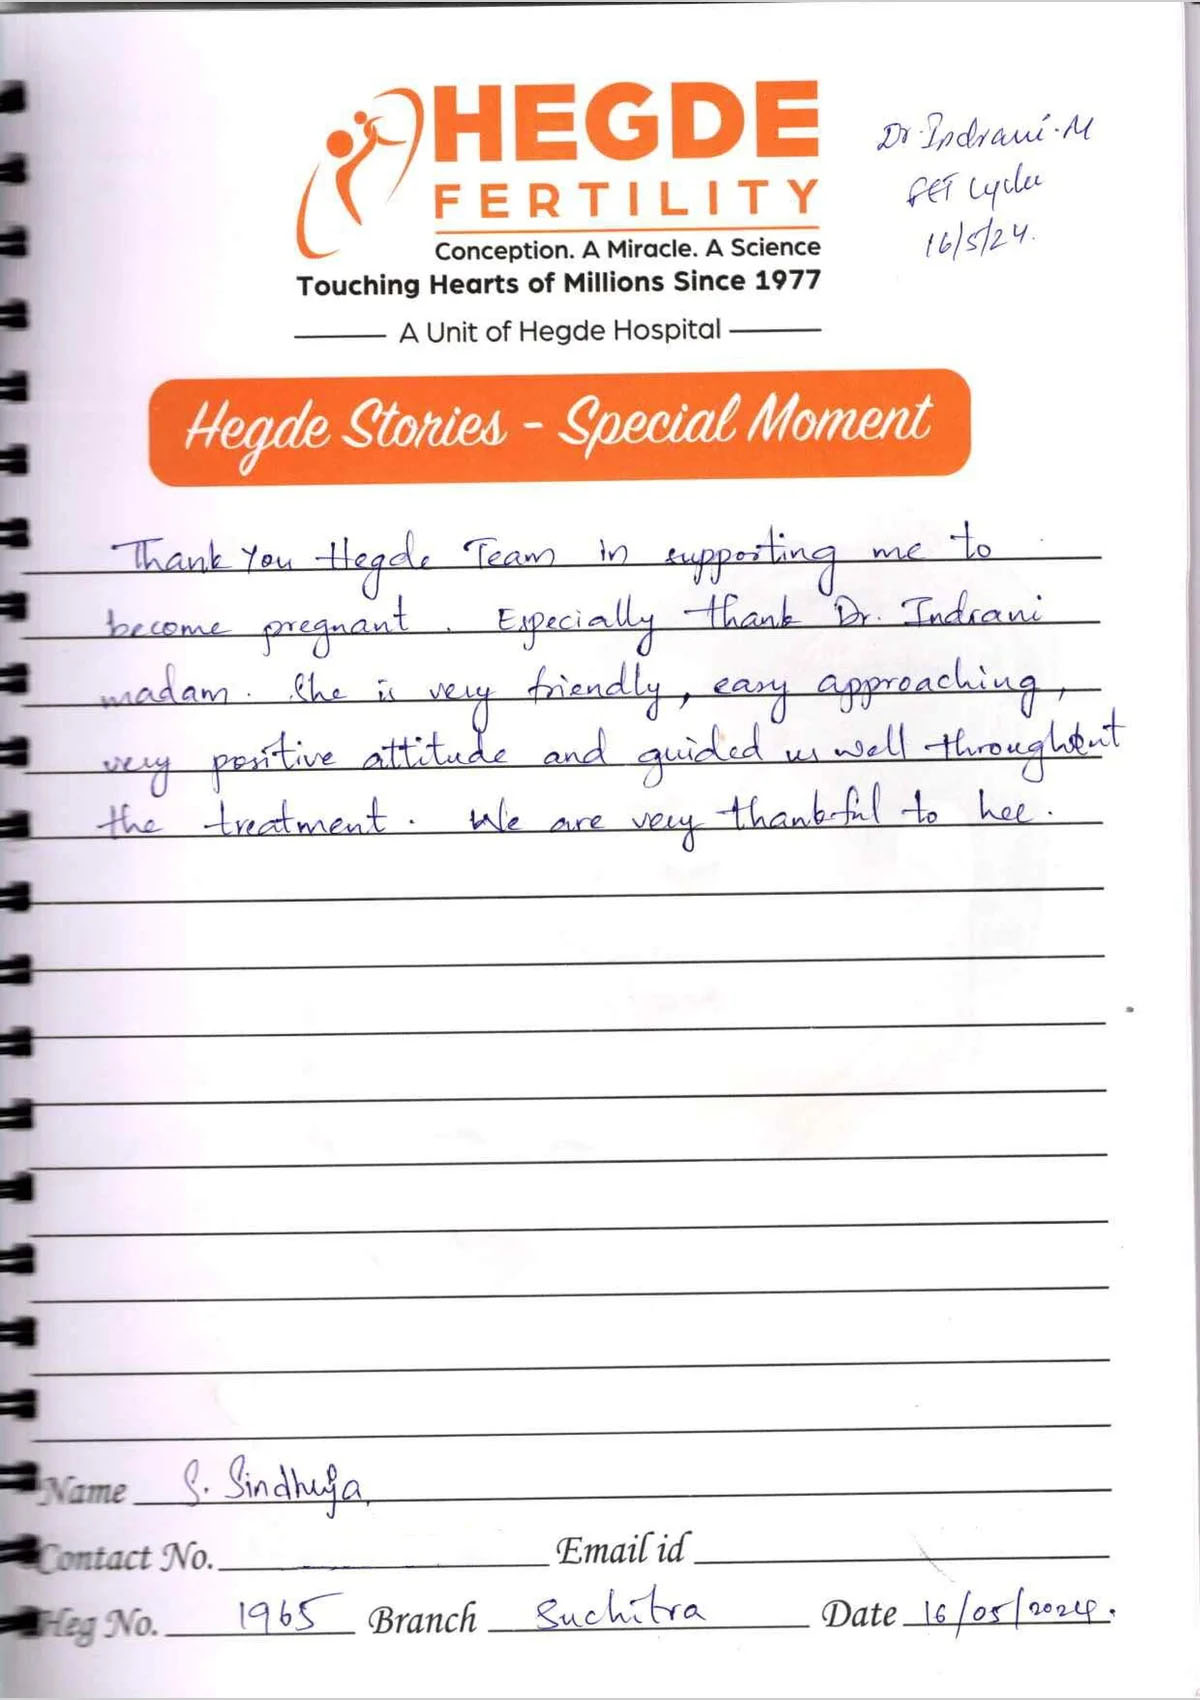 HEGDE
FERTILITY
Conception. A Miracle. A Science
Touching Hearts of Millions Since 1977
A Unit of Hegde Hospital
Dr. Indrani. M
FET Cycle
16/5/24.
Hegde Stories - Special Moment
Thank You Hegde Team in supporting me to
become pregnant. Especially thank Dr. Indrani
madam. She is very friendly, easy approaching,
very positive attitude and guided us well throughout
the treatment. We are very thankful to her.
Name S. Sindhuja
Contact No. Email id
Heg No. 1965 Branch Suchitra Date 16/05/2024.